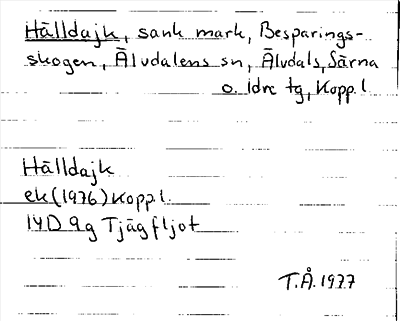 Hälldajk, sank mark, Besparings-
skogen, Älvdalens sn, Älvdals, Särna
o. Idre tg, Kopp.l.
Hälldajk
ek (1976) Kopp.l.
14D 9g Tjägfljot
T.Å. 1977